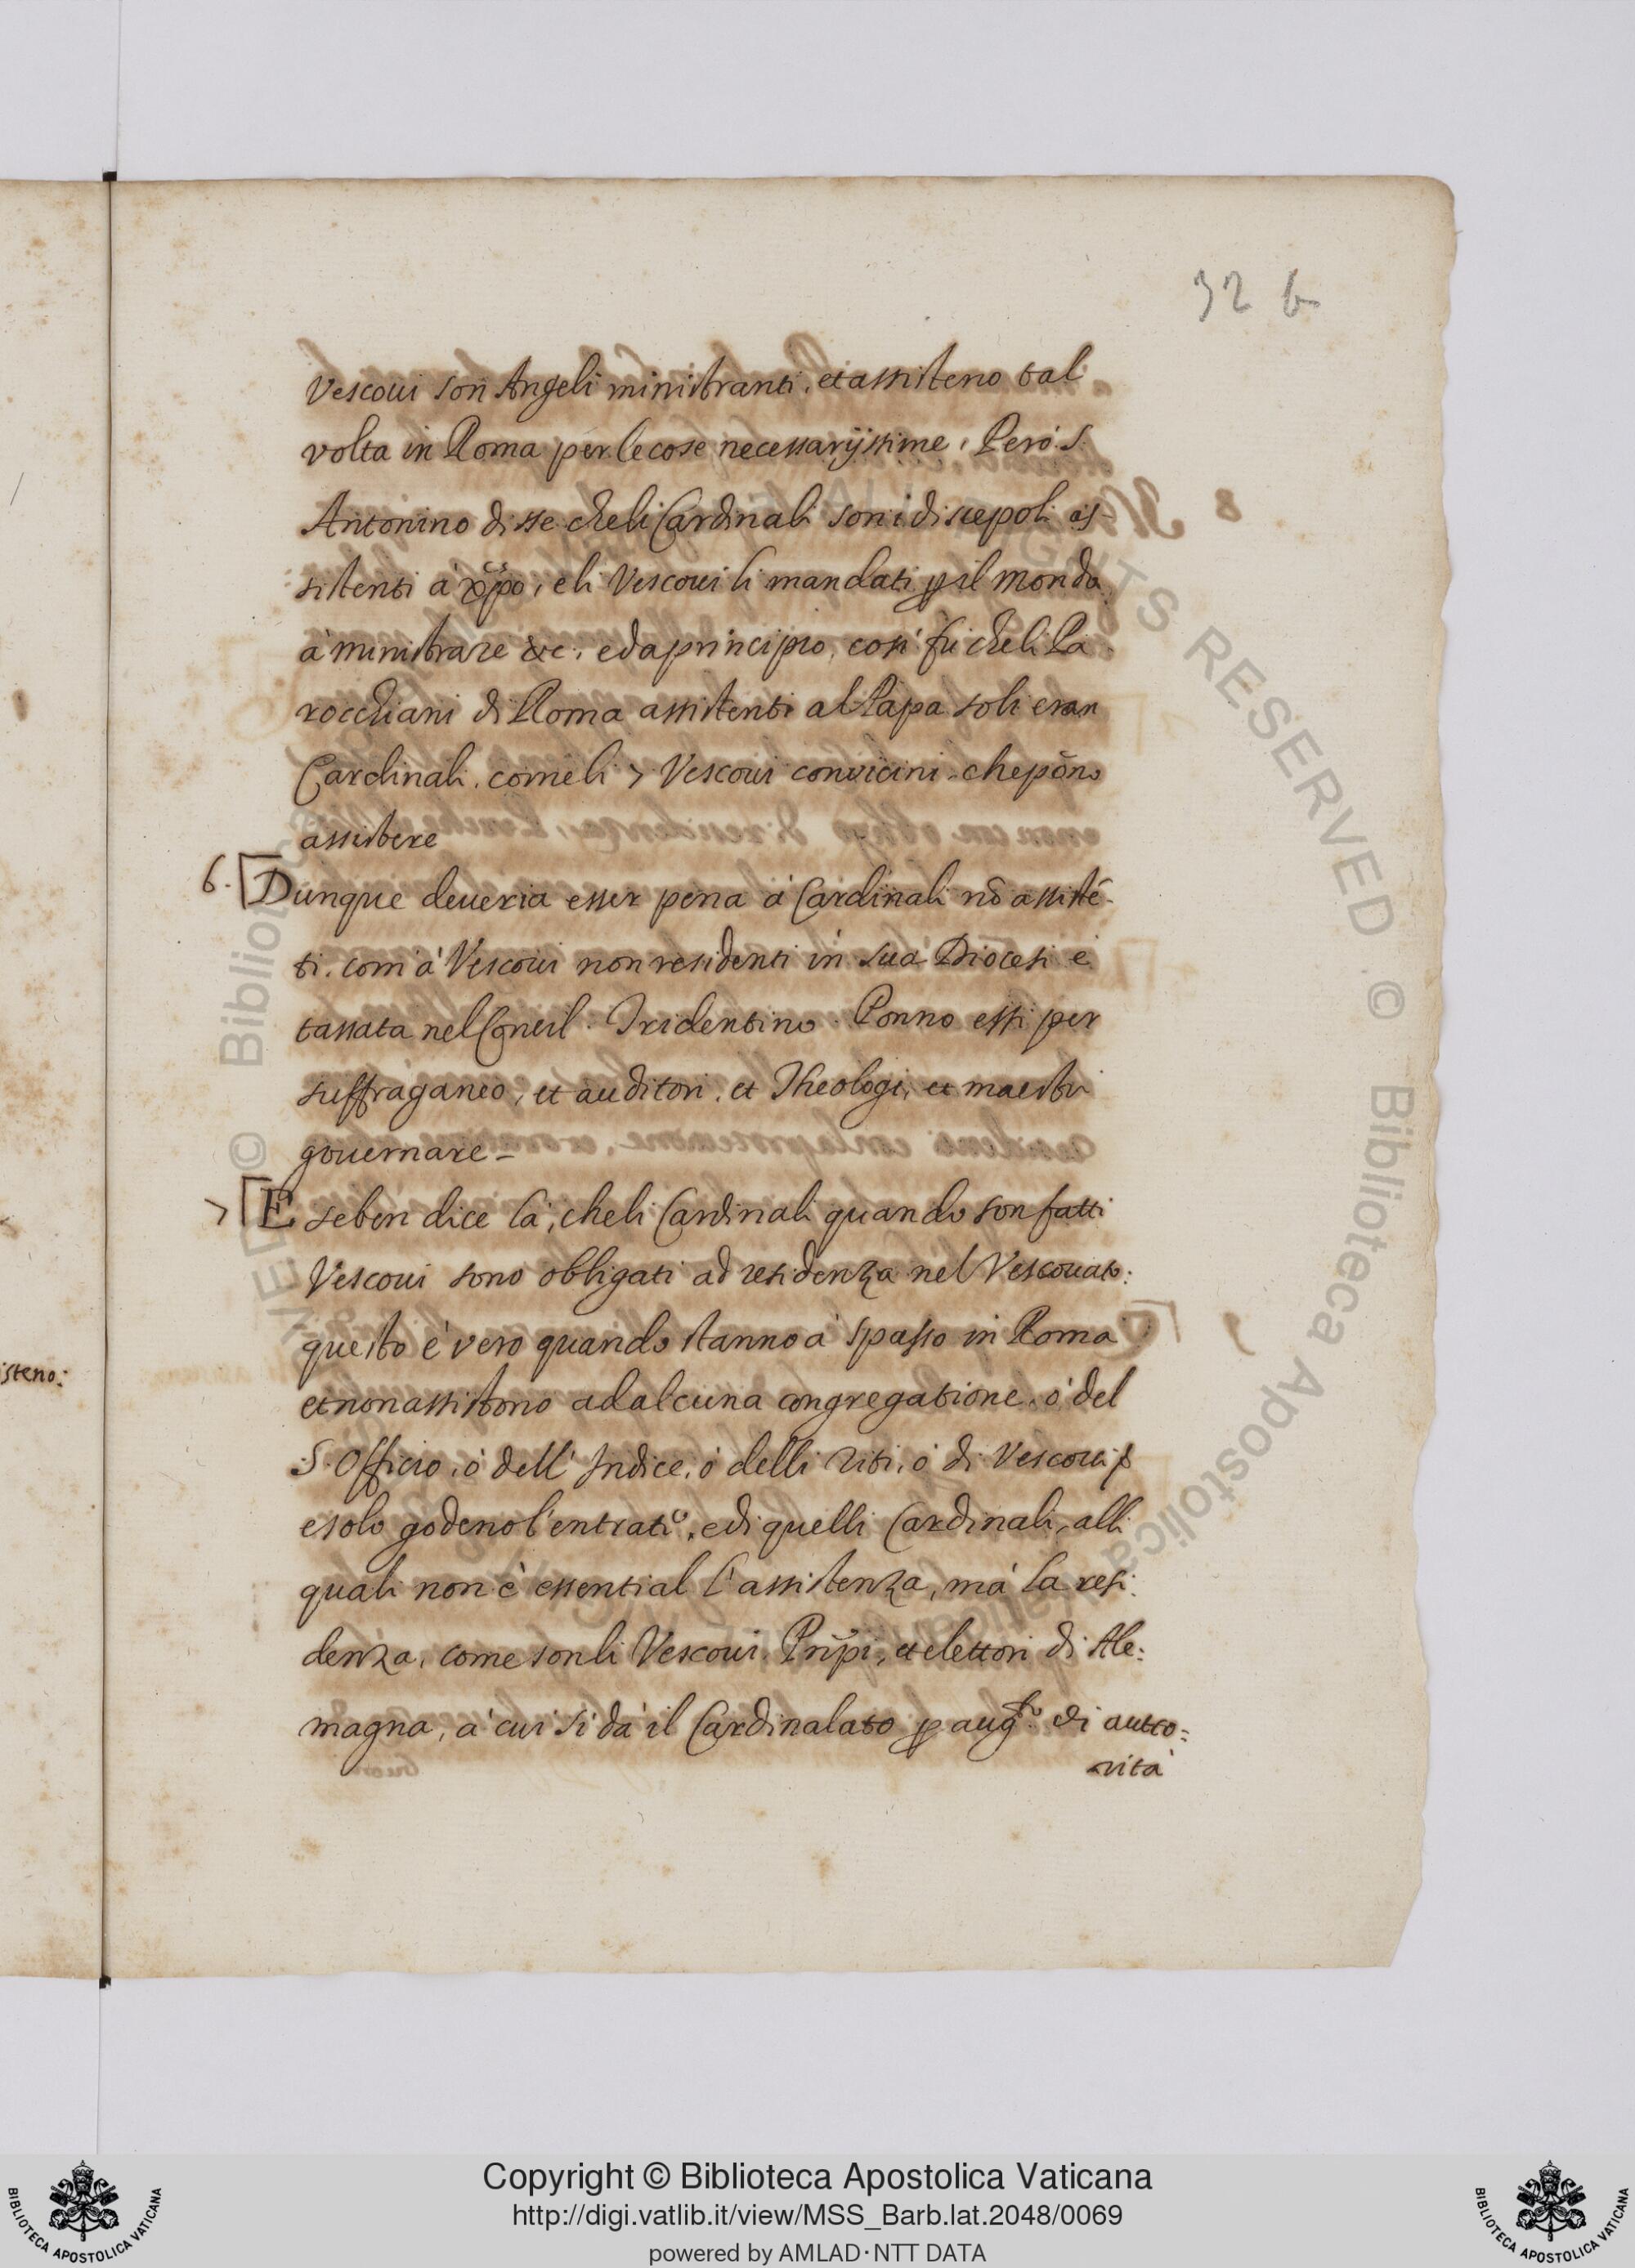 32 6
Vescoui son Angeli ministranti, et assisteno tal
volta in Roma per le cose necessarijssime, Però S.
Antonino disse che li Cardinali son i discepoli as-
sistenti à xp̃o, e li Vescoui li mandati ꝑ il mondo
à ministrare &c. e da principio, così fù che li Pa
rocchiani di Roma assistenti al Papa soli eran
Cardinali, come li 7 Vescoui convicini che põno
assistere
6. Dunque deueria esser pena à Cardinali nõ assistẽ-
ti, com'à Vescoui non residenti in sua Diocesi è
tassata nel Concil. Tridentino. Ponno essi per
suffraganeo, et auditori, et Theologi, et maestri
gouernare
7 E se ben dice là, che li Cardinali quando son fatti
Vescoui sono obbligati ad residenza nel Vescouato:
questo è vero quando stanno à spasso in Roma
et non assistono ad alcuna congregatione, ò del
S. Officio, ò dell' Indice, ò delli riti, ò di Vescoui
e solo godeno l'entrate, e di quelli Cardinali, alli
quali non è essential l'assistenza, mà la resi:
denza, come son li Vescoui Prĩpi, et elettori di Ale:
magna, à cui si dà il Cardinalato ꝑ augto di autto:
rità
isteno:
ALL RIGHTS RESERVED © Biblioteca Apostolica Vaticana
Copyright © Biblioteca Apostolica Vaticana
http://digi.vatlib.it/view/MSS_Barb.lat.2048/0069
powered by AMLAD·NTT DATA
BIBLIOTECA APOSTOLICA VATICANA
BIBLIOTECA APOSTOLICA VATICANA